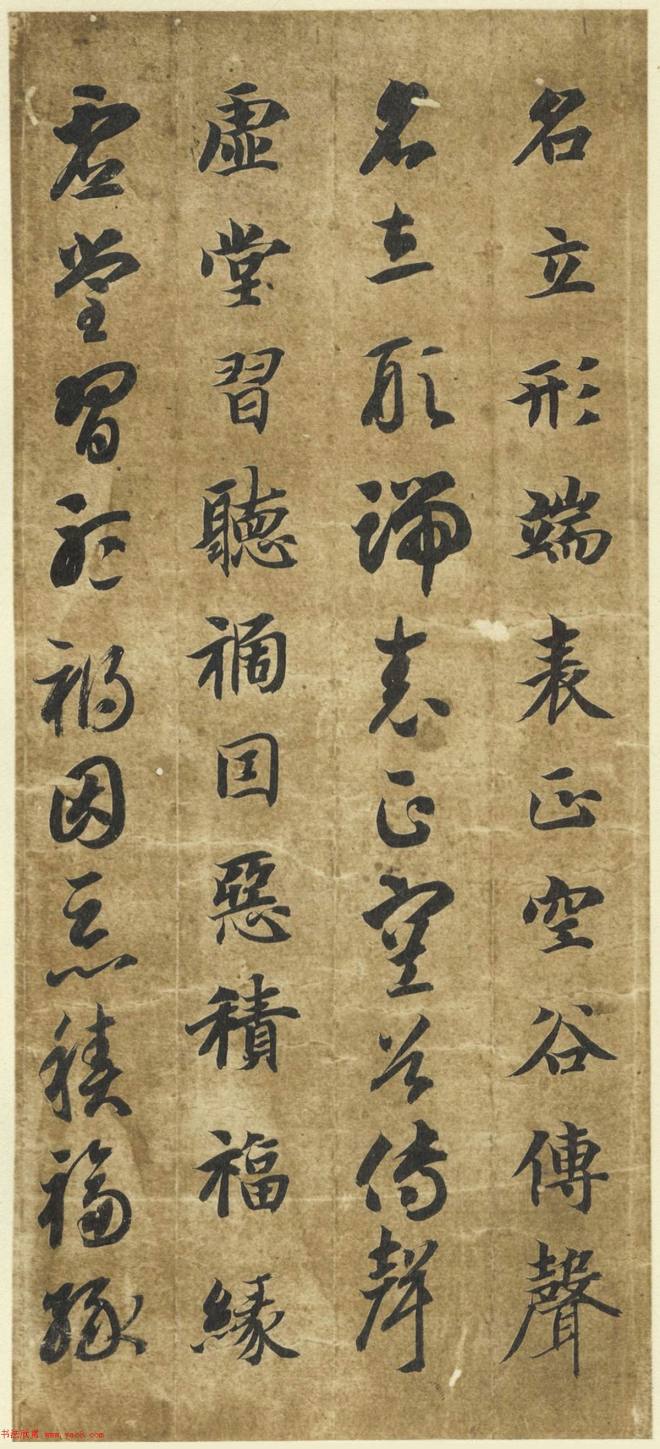 名立形端表正空谷傳聲
名立形端表正空谷傳聲
虛堂習聽禍因惡積福緣
虛堂習聽禍因惡積福緣
书法欣赏 www.yac8.com